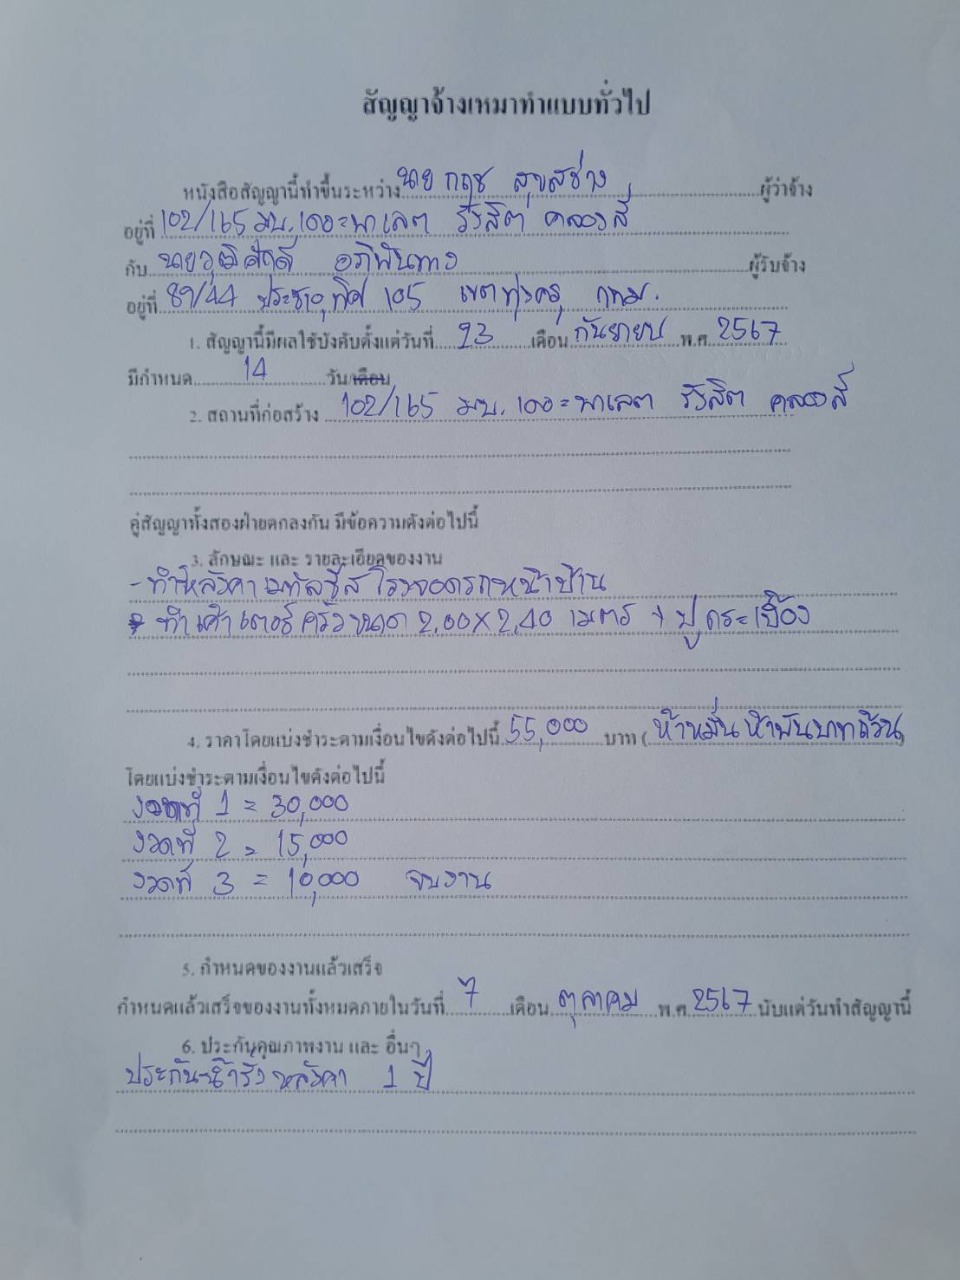 สัญญาจ้างเหมาทำแบบทั่วไป
หนังสือสัญญานี้ทำขึ้นระหว่าง นาย กฤช สุขสช่าง ผู้ว่าจ้าง
อยู่ที่ 102/165 มบ.เดอะพาเลต รังสิต คลองสี่
กับ นายวุฒิศักดิ์ อภิพันทาง ผู้รับจ้าง
อยู่ที่ 89/44 ประชาอุทิศ 105 เขตทุ่งครุ กทม.
1. สัญญานี้มีผลใช้บังคับตั้งแต่วันที่ 23 เดือน กันยายน พ.ศ. 2567
มีกำหนด 14 วัน เดือน
2. สถานที่ก่อสร้าง 102/165 มบ. เดอะพาเลต รังสิต คลองสี่
คู่สัญญาทั้งสองฝ่ายตกลงกัน มีข้อความดังต่อไปนี้
3. ลักษณะ และ รายละเอียดของงาน
- ทำหลังคาเมทัลชีส โรงจอดรถหน้าบ้าน
- ทำเค้าเตอร์ครัวขนาด 2.00x2.40 เมตร + ปูกระเบื้อง
4. ราคาโดยแบ่งชำระตามเงื่อนไขดังต่อไปนี้ 55,000 บาท ( ห้าหมื่นห้าพันบาทถ้วน)
โดยแบ่งชำระตามเงื่อนไขดังต่อไปนี้
งวดที่ 1 = 30,000
งวดที่ 2 = 15,000
งวดที่ 3 = 10,000 จบงาน
5. กำหนดของงานแล้วเสร็จ
กำหนดแล้วเสร็จของงานทั้งหมดภายในวันที่ 7 เดือน ตุลาคม พ.ศ. 2567 นับแต่วันทำสัญญานี้
6. ประกันคุณภาพงาน และ อื่นๆ
ประกันน้ำรั่วหลังคา 1 ปี